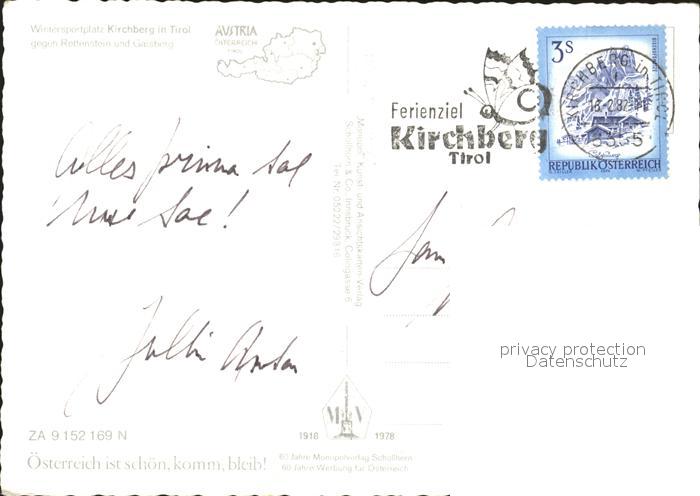 Wintersportplatz Kirchberg in Tirol
gegen Rettenstein und Gaisberg
AUSTRIA
ÖSTERREICH
TIROL
Ferienziel
Kirchberg
Tirol
3S
REPUBLIK ÖSTERREICH
KIRCHBERG in TIROL
6365
Alles prima
Julli
Monopol, Kunst- und Ansichtskarten-Verlag
Schöllhorn & Co., Innsbruck, Colingasse 6
M V
1918 1978
privacy protection
Datenschutz
ZA 9 152 169 N
Österreich ist schön, komm, bleib!
60 Jahre Monopolverlag Schöllhorn
60 Jahre Werbung für Österreich